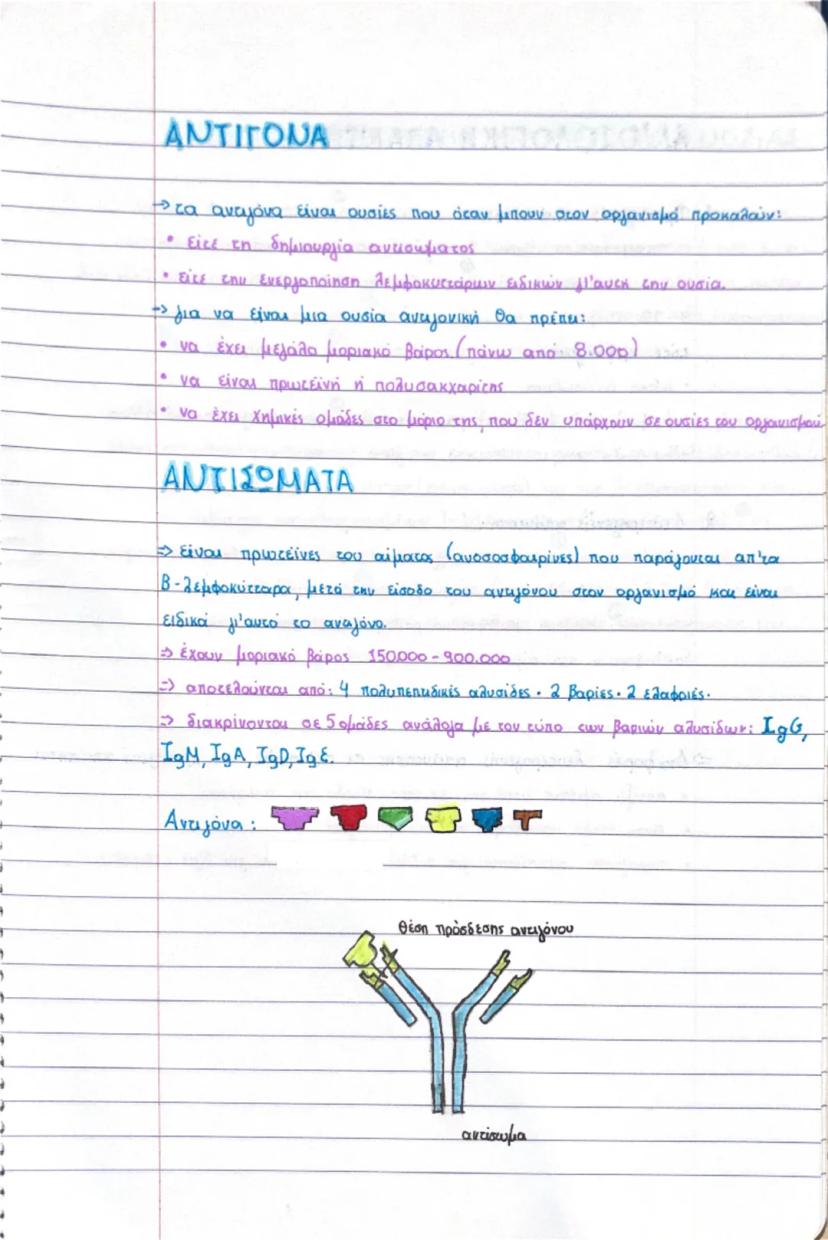 ΑΝΤΙΓΟΝΑ
→ τα αντιγόνα είναι ουσίες που όταν μπουν στον οργανισμό προκαλούν:
• είτε τη δημιουργία αντισώματος
• είτε την ενεργοποίηση λεμφοκυττάρων ειδικών γι'αυτή την ουσία.
→ για να είναι μια ουσία αντιγονική θα πρέπει:
• να έχει μεγάλο μοριακό βάρος (πάνω από 8.000)
• να είναι πρωτεϊνή ή πολυσακχαρίτης
• να έχει χημικές ομάδες στο μόριο της, που δεν υπάρχουν σε ουσίες του οργανισμού.
ΑΝΤΙΣΩΜΑΤΑ
⇒ είναι πρωτεΐνες του αίματος (ανοσοσφαιρίνες) που παράγονται απ'τα
Β-λεμφοκύτταρα, μετά την είσοδο του αντιγόνου στον οργανισμό και είναι
ειδικά γι'αυτό το αντιγόνο.
⇒ έχουν μοριακό βάρος 150.000 - 900.000
⇒ αποτελούνται από: 4 πολυπεπτιδικές αλυσίδες • 2 βαριές • 2 ελαφριές.
⇒ διακρίνονται σε 5 ομάδες ανάλογα με τον τύπο των βαριών αλυσίδων: IgG,
IgM, IgA, IgD, IgE.
Αντιγόνα:
θέση πρόσδεσης αντιγόνου
αντίσωμα